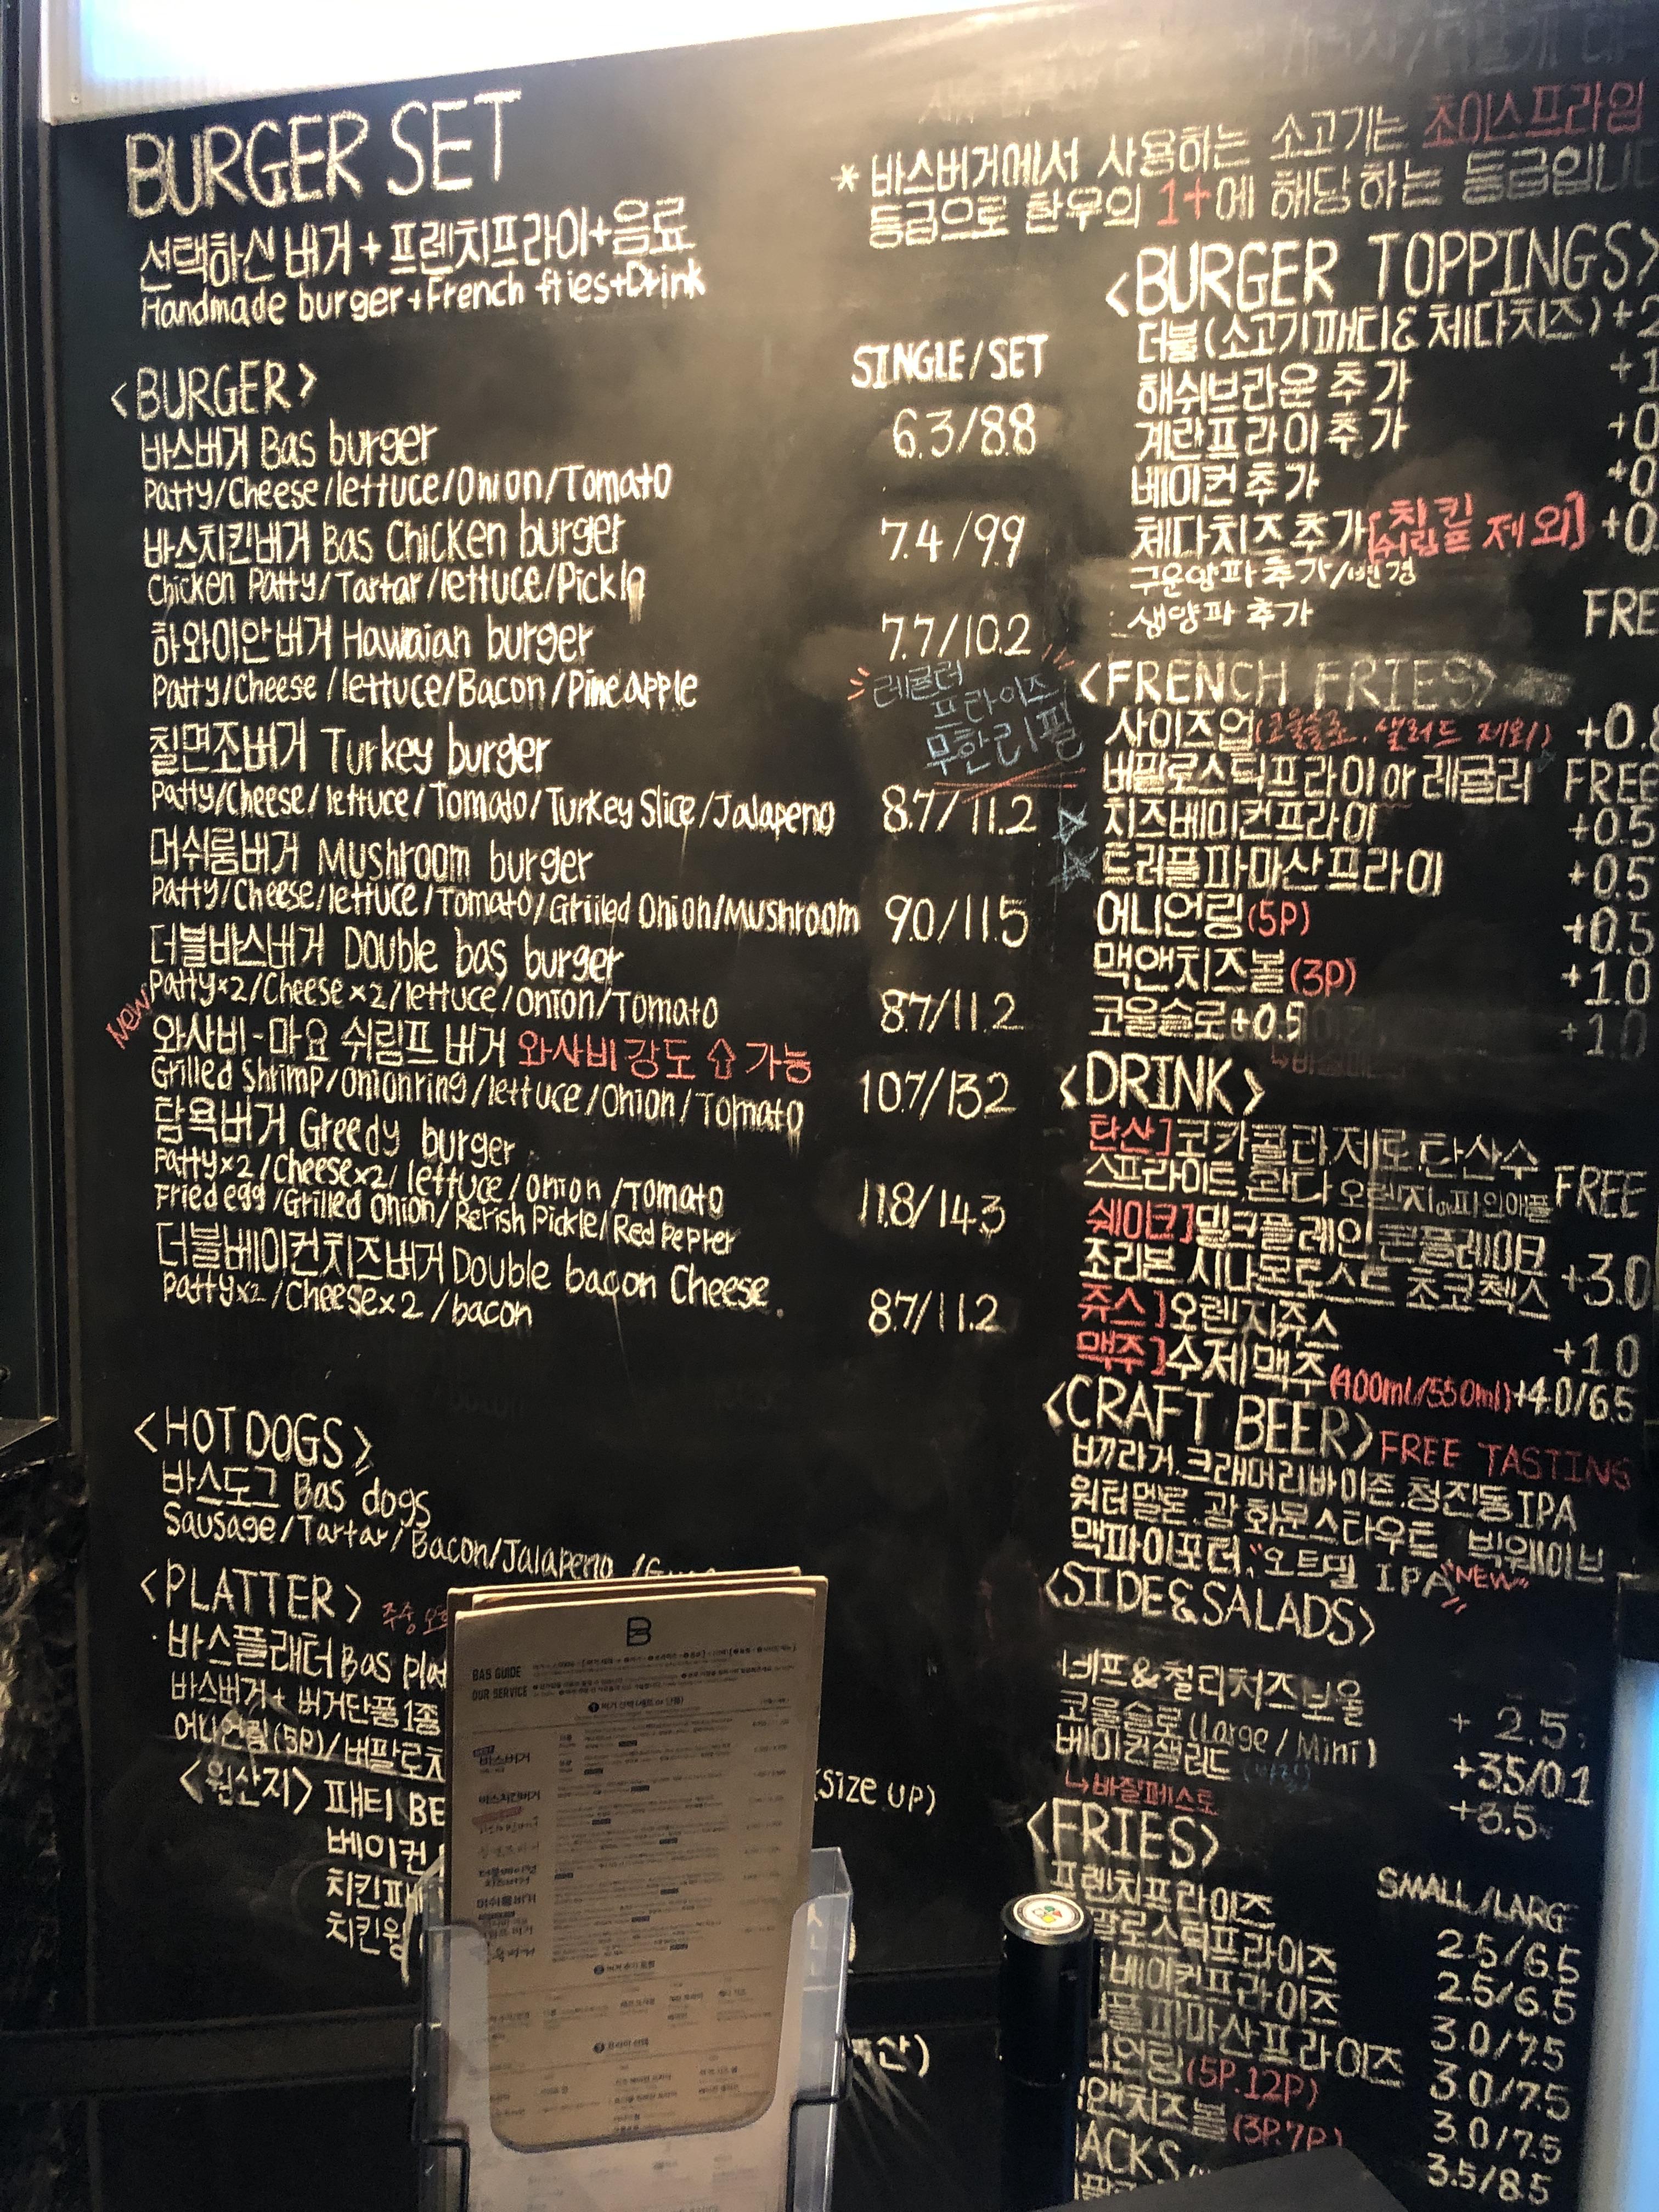 BURGER SET
선택하신 버거 + 프렌치프라이+음료
Handmade burger+French fries+Drink
<BURGER>
SINGLE/SET
바스버거 Bas burger
6.3/8.8
Patty/Cheese/lettuce/Onion/Tomato
바스치킨버거 Bas Chicken burger
7.4/9.9
Chicken Patty/Tartar/lettuce/Pickle
하와이안버거 Hawaian burger
7.7/10.2
Patty/Cheese/lettuce/Bacon/Pineapple
레귤러
프라이즈
무한리필
칠면조버거 Turkey burger
Patty/Cheese/lettuce/Tomato/Turkey Slice/Jalapeno
8.7/11.2
머쉬룸버거 Mushroom burger
Patty/Cheese/lettuce/Tomato/Grilled Onion/Mushroom
9.0/11.5
더블바스버거 Double bas burger
Patty×2/Cheese×2/lettuce/onion/Tomato
8.7/11.2
NEW
와사비-마요 쉬림프 버거 와사비 강도 ⇧ 가능
Grilled Shrimp/Onionring/lettuce/Onion/Tomato
10.7/13.2
탐욕버거 Greedy burger
Patty×2/Cheese×2/lettuce/onion/Tomato
Fried egg/Grilled Onion/Rerish Pickle/Red Pepper
11.8/14.3
더블베이컨치즈버거 Double bacon Cheese
Patty×2/Cheese×2/bacon
8.7/11.2
<HOT DOGS>
바스도그 Bas dogs
Sausage/Tartar/Bacon/Jalapeno
<PLATTER>
바스플래터 Bas
바스버거+ 버거단품 1종
어니언링(5P)/버팔로
<원산지> 패티
베이컨
(SIZE UP)
* 바스버거에서 사용하는 소고기는 초이스프라임
등급으로 한우의 1+에 해당하는 등급입니
<BURGER TOPPINGS>
더블(소고기패티& 체다치즈)
해쉬브라운 추가
계란프라이 추가
베이컨 추가
체다치즈 추가[치킨 쉬림프 제외]
구운양파 추가/변경
생양파 추가
<FRENCH FRIES>
사이즈업(코울슬로, 샐러드 제외)
버팔로스틱프라이 or 레귤러 FREE
치즈베이컨프라이 +0.5
트러플파마산프라이 +0.5
어니언링(5P) +0.5
맥앤치즈볼(3P) +1.0
코울슬로+0.5
<DRINK>
탄산] 코카콜라.제로.탄산수
스프라이트.환타 오렌지or파인애플 FREE
쉐이크] 밀크플레인 콘플레이크
조리퐁 시나몬토스트 초코첵스 +3.0
쥬스] 오렌지쥬스 +1.0
맥주] 수제맥주(400ml/550ml)+4.0/6.5
<CRAFT BEER> FREE TASTING
빠꺄라거.크래머리바이젠.청진동IPA
워터멜론.광화문스타우트 빅웨이브
맥파이포터."오트밀 IPA" NEW
<SIDE&SALADS>
비프&칠리치즈보울 + 2.5
코울슬로(Large/Mini) +3.5/0.1
베이컨샐러드 +3.5
↳바질페스토
<FRIES>
SMALL/LARGE
프렌치프라이즈 2.5/6.5
팔로스틱프라이즈 2.5/6.5
베이컨프라이즈 3.0/7.5
플파마산프라이즈 3.0/7.5
언링(5P.12P) 3.0/7.5
앤치즈볼(3P.7P) 3.5/8.5
ACKS
B
BAS GUIDE
OUR SERVICE
바스버거
바스치킨버거
머쉬룸버거